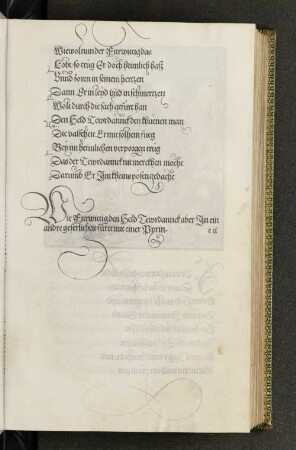 Wiewol nun der Fürwittig das
Lobt so trüg Er doch heimlich hass
Vnnd zoren in seinem hertzen
Dann Er in leid vnd in schmertzen
Wolt durch die sach gefürt han
Den Held Tewrdannck den thüenen man
Die valscheit Er mit solhem fueg
Bey im heimlichen verporgen trüg
Das der Tewrdannck nit mercken mocht
Darumb Er Im kheins posen gedacht
Wie Fürwittig den Held Tewrdannck aber Jn ein
andre geferlicheit füret mit einer